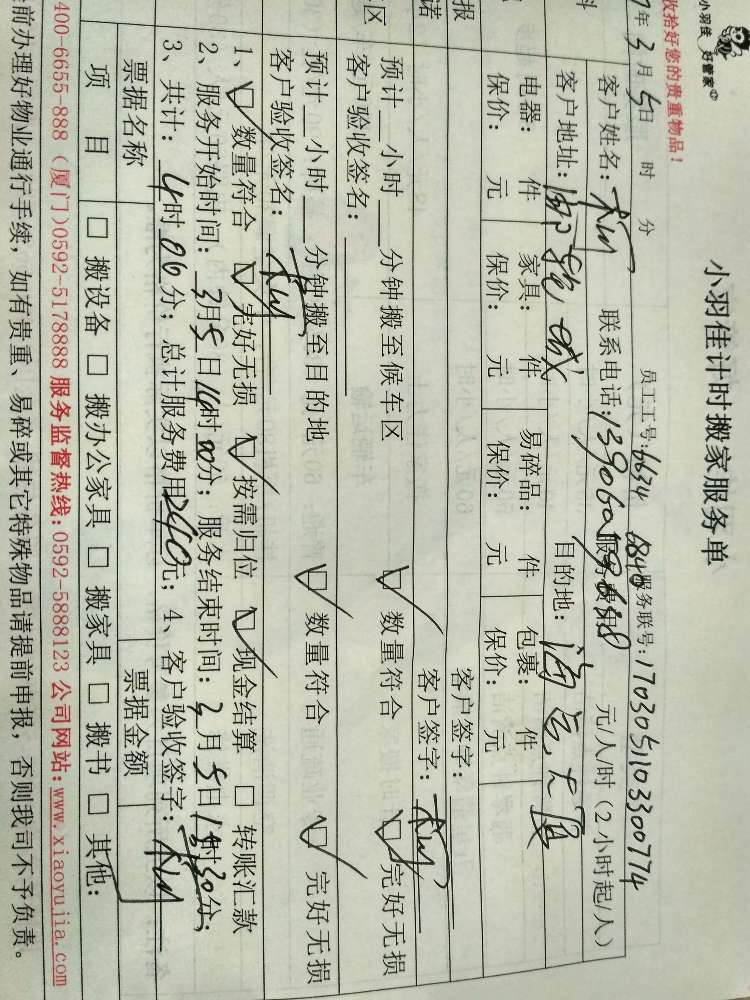 小羽佳 好管家
小羽佳计时搬家服务单
收拾好您的贵重物品！
员工工号：6634 6848 服务联号：1703051103300774
7年3月5日 时 分
客户姓名： 联系电话： 服务费用 元/人/时（2小时起/人）
客户地址： 目的地：海 大厦
电器： 件 家具： 件 易碎品： 件 包裹： 件
保价： 元 保价： 元 保价： 元 保价： 元
客户签字：
客户签字：
预计 小时 分钟搬至候车区 数量符合 完好无损
客户验收签名：
预计 小时 分钟搬至目的地 数量符合 完好无损
客户验收签名：
1、 数量符合 完好无损 按需归位 现金结算 转账汇款
2、服务开始时间：3月5日 时00分；服务结束时间：3月5日 时30分；
3、共计：4时06分；总计服务费用240元；4、客户验收签字：
票据名称 票据金额
项 目 搬设备 搬办公家具 搬家具 搬书 其他：
400-6655-888（厦门）0592-5178888 服务监督热线：0592-5888123 公司网站：www.xiaoyujia.com
前办理好物业通行手续，如有贵重、易碎或其它特殊物品请提前申报，否则我司不予负责。